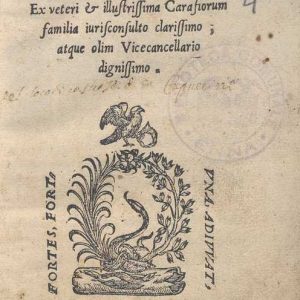 Ex veteri & illustrissima Carafiorum
familia iurisconsulto clarissimo ;
atque olim Vicecancellario
dignissimo .
4
FORTES, FORT
VNA ADIVVAT,